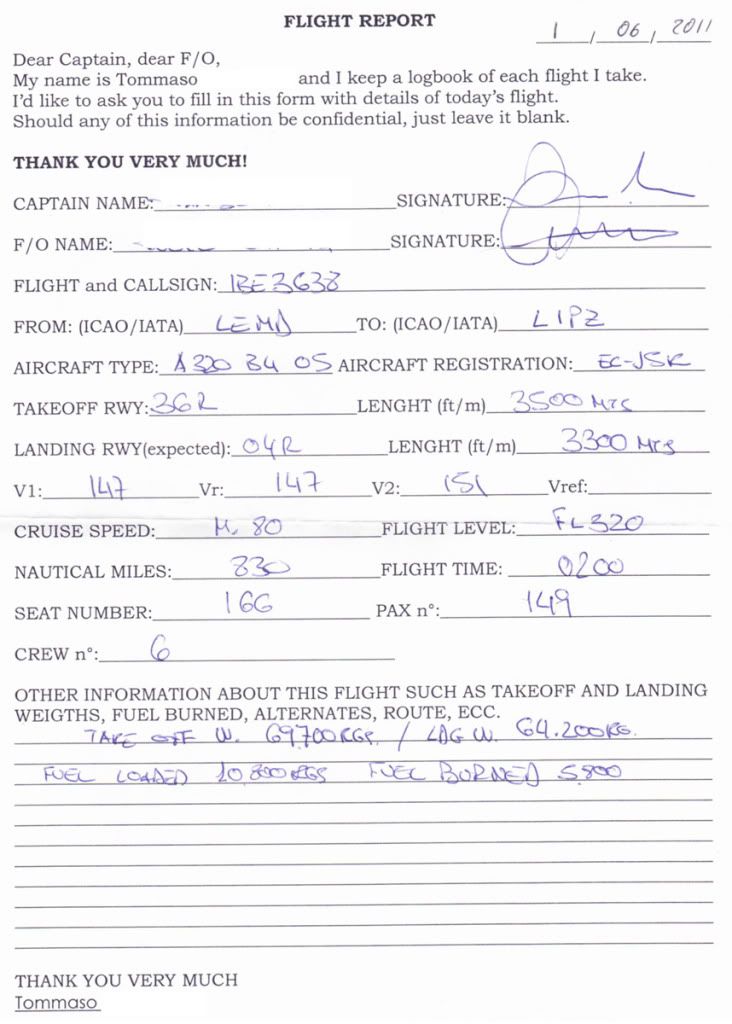 FLIGHT REPORT
1 / 06 / 2011
Dear Captain, dear F/O,
My name is Tommaso and I keep a logbook of each flight I take.
I'd like to ask you to fill in this form with details of today's flight.
Should any of this information be confidential, just leave it blank.
THANK YOU VERY MUCH!
CAPTAIN NAME: SIGNATURE:
F/O NAME: SIGNATURE:
FLIGHT and CALLSIGN: IBE3638
FROM: (ICAO/IATA) LEMD TO: (ICAO/IATA) LIPZ
AIRCRAFT TYPE: A320 B4 05 AIRCRAFT REGISTRATION: EC-JSK
TAKEOFF RWY: 36R LENGHT (ft/m) 3500 MTS
LANDING RWY(expected): 04R LENGHT (ft/m) 3300 MTS
V1: 147 Vr: 147 V2: 151 Vref:
CRUISE SPEED: M.80 FLIGHT LEVEL: FL320
NAUTICAL MILES: 830 FLIGHT TIME: 0200
SEAT NUMBER: 16G PAX n°: 149
CREW n°: 6
OTHER INFORMATION ABOUT THIS FLIGHT SUCH AS TAKEOFF AND LANDING
WEIGTHS, FUEL BURNED, ALTERNATES, ROUTE, ECC.
TAKE OFF W. 69700KGS. / LDG W. 64.200KG.
FUEL LOADED 10.800KGS FUEL BURNED 5.800
THANK YOU VERY MUCH
Tommaso